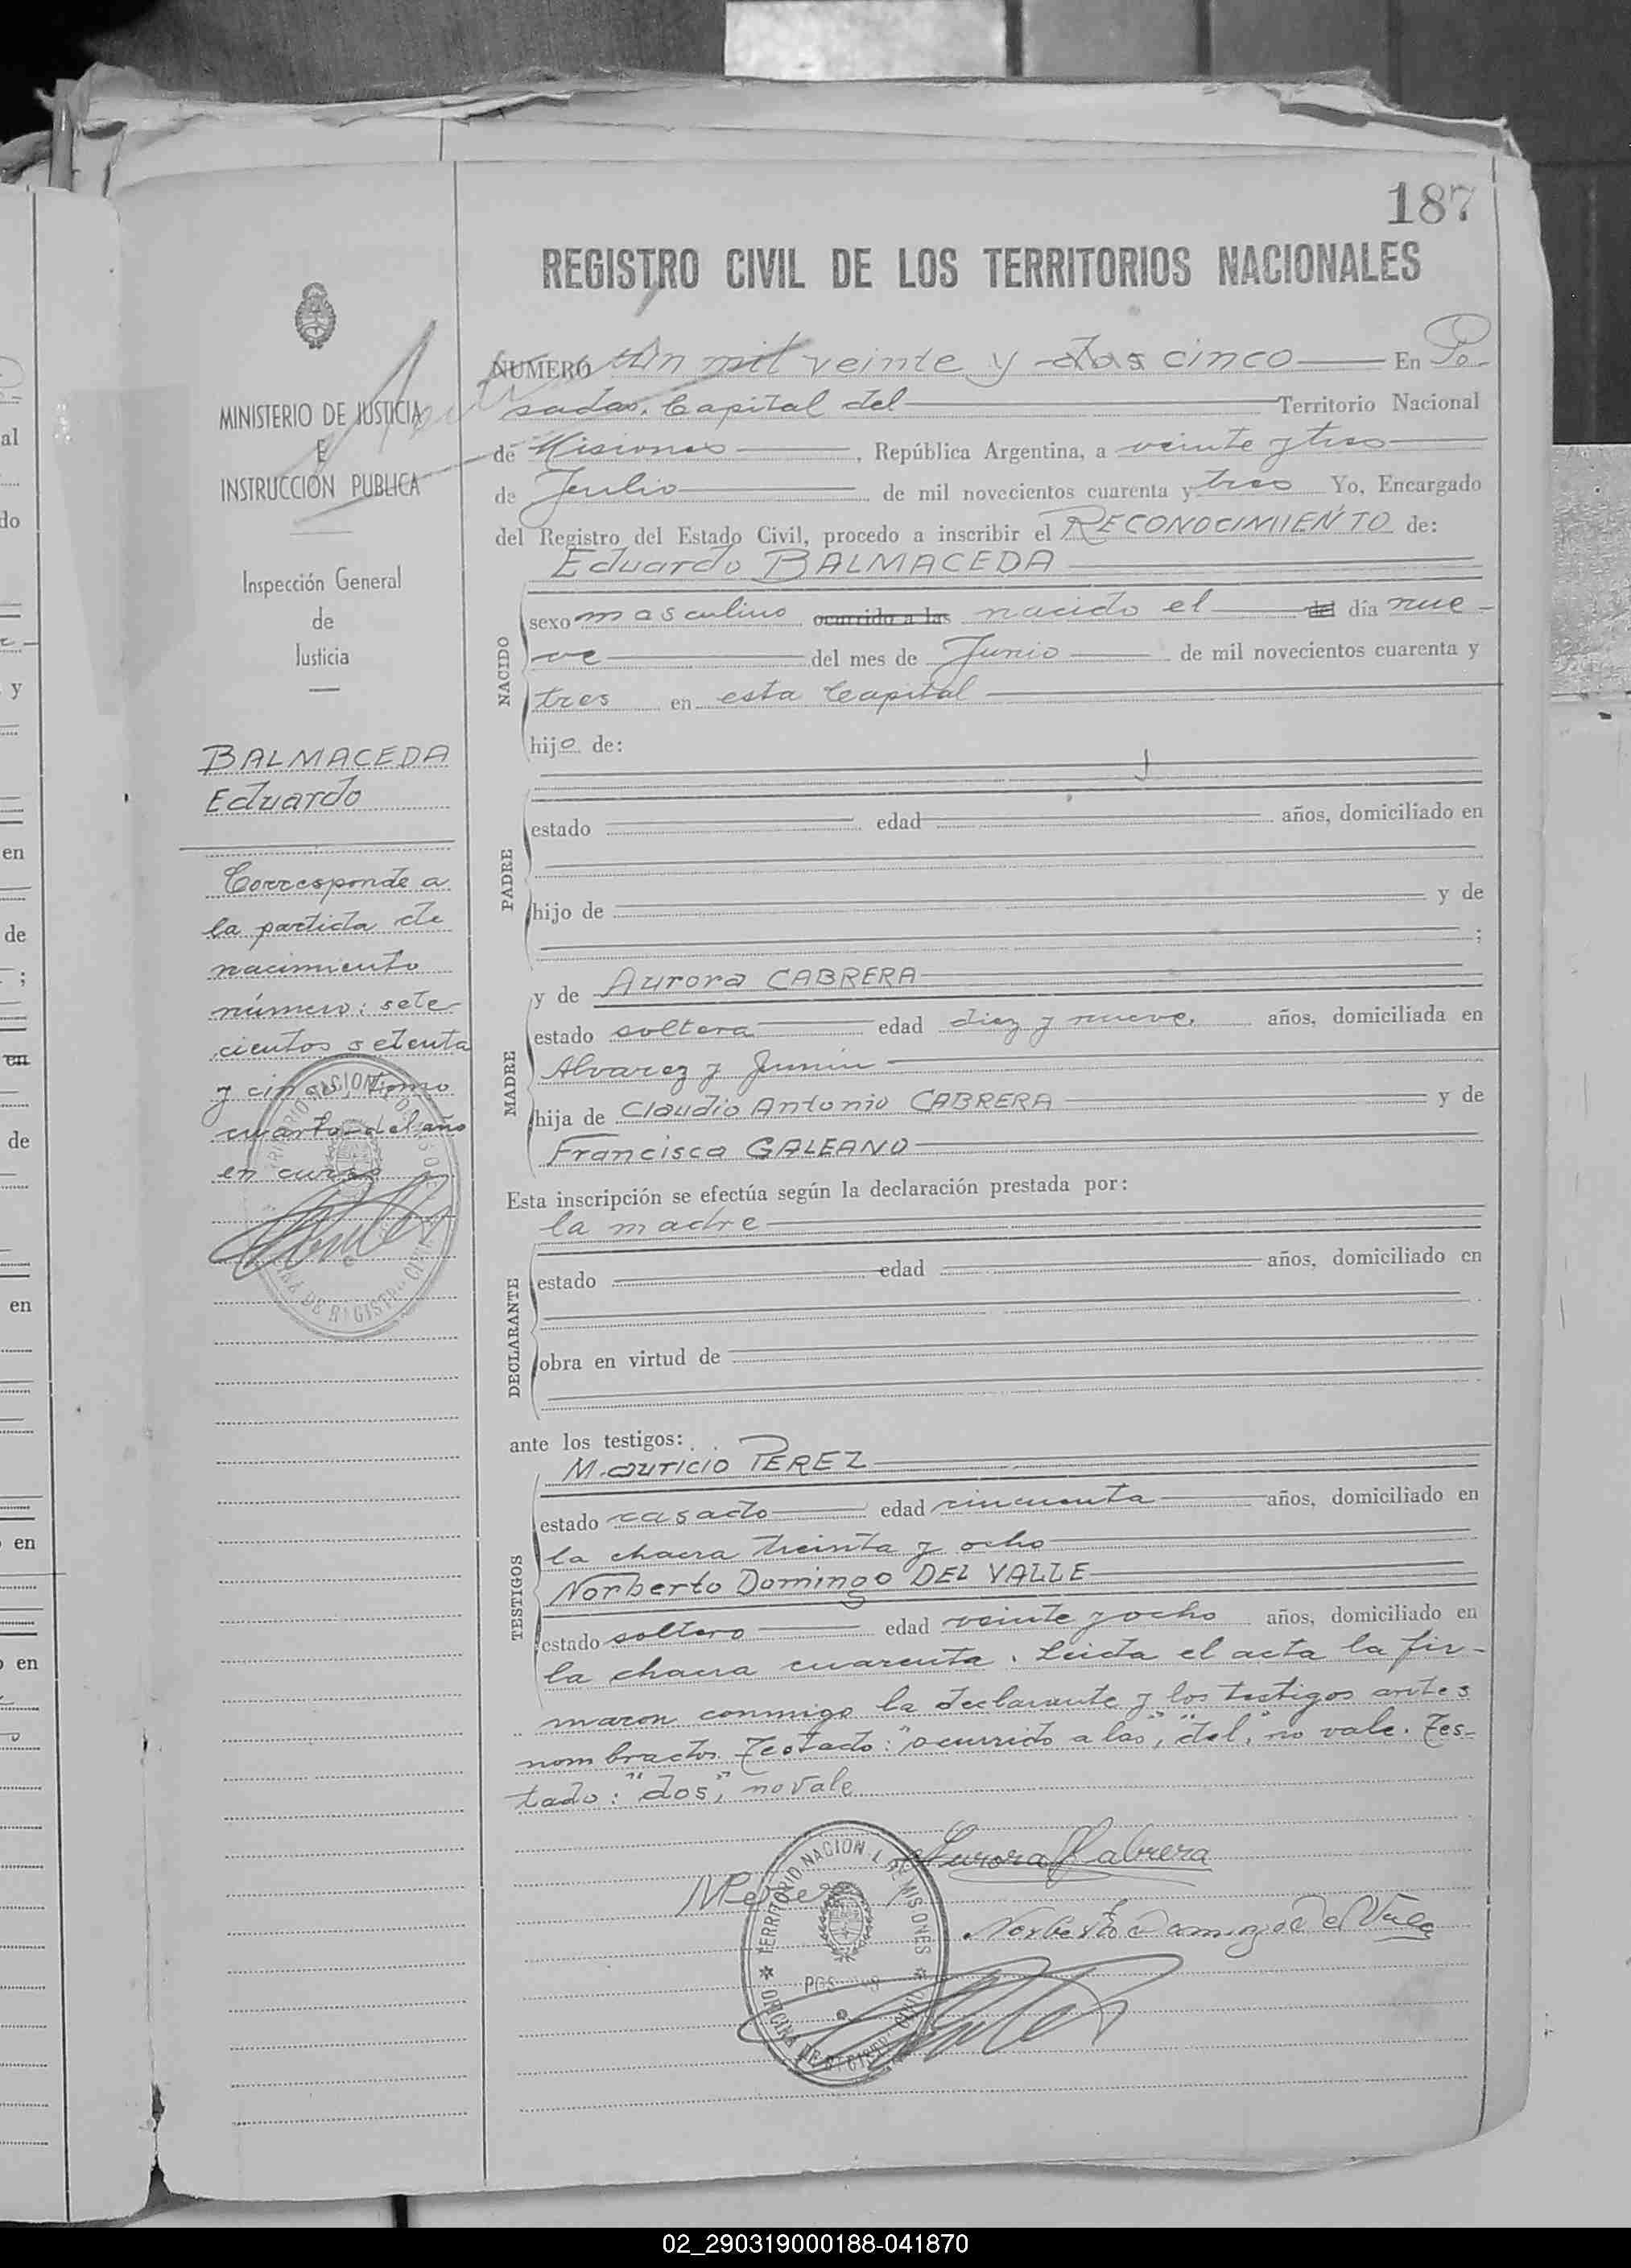 187
REGISTRO CIVIL DE LOS TERRITORIOS NACIONALES
MINISTERIO DE JUSTICIA
E
INSTRUCCIÓN PUBLICA
Inspección General
de
Justicia
BALMACEDA
Eduardo
Corresponde a
la partida de
nacimiento
número: sete
cientos setenta
y cinco, tomo
cuarto del año
en curso
NUMERO Un mil veinte y dos cinco En Po-
sadas, Capital del Territorio Nacional
de Misiones, República Argentina, a veinte y tres
de Julio de mil novecientos cuarenta y tres Yo, Encargado
del Registro del Estado Civil, procedo a inscribir el RECONOCIMIENTO de:
Eduardo BALMACEDA
NACIDO
sexo masculino ocurrido a las nacido el del día nue-
ve del mes de Junio de mil novecientos cuarenta y
tres en esta Capital
hijo de:
PADRE
estado edad años, domiciliado en
hijo de y de
;
MADRE
y de Aurora CABRERA
estado soltera edad diez y nueve, años, domiciliada en
Alvarez y Junin
hija de Claudio Antonio CABRERA y de
Francisca GALEANO
Esta inscripción se efectúa según la declaración prestada por:
la madre
DECLARANTE
estado edad años, domiciliado en
obra en virtud de
ante los testigos:
TESTIGOS
Mauricio PEREZ
estado casado edad cincuenta años, domiciliado en
la chacra treinta y ocho
Norberto Domingo DEL VALLE
estado soltero edad veinte y ocho años, domiciliado en
la chacra cuarenta. Leida el acta la fir-
maron conmigo la declarante y los testigos antes
nombrados. Testado: "ocurrido a las", "del", no vale. Tes-
tado: "dos", no vale
Aurora Cabrera
MPerez
Norberto Domingo Del Valle
TERRITORIO NACIONAL DE MISIONES
OFICINA DE REGISTRO CIVIL
02_290319000188-041870